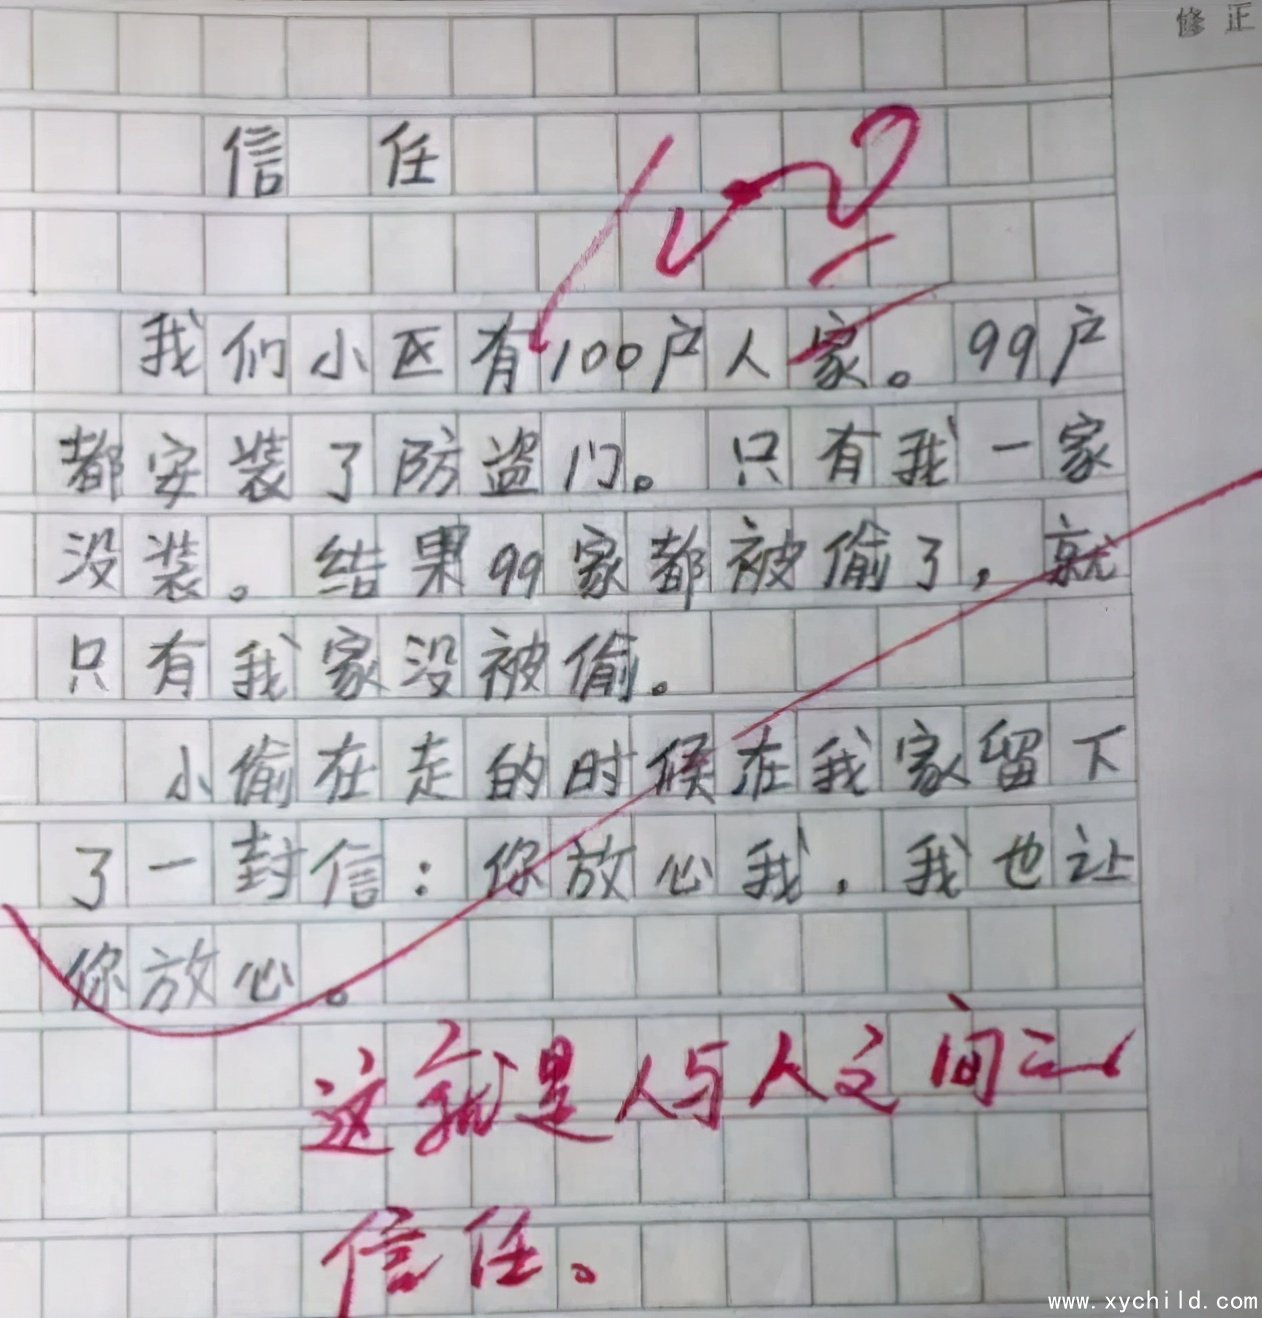 修正
信任
我们小区有100户人家。99户
都安装了防盗门。只有我一家
没装。结果99家都被偷了，就
只有我家没被偷。
小偷在走的时候在我家留下
了一封信：你放心我，我也让
你放心。
这就是人与人之间
信任。
www.xychild.com